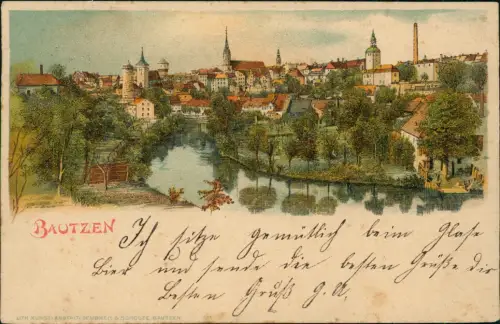 BAUTZEN
Ich sitze gemütlich beim Glase
Bier und sende die besten Grüße dir
Besten Gruß G. K.